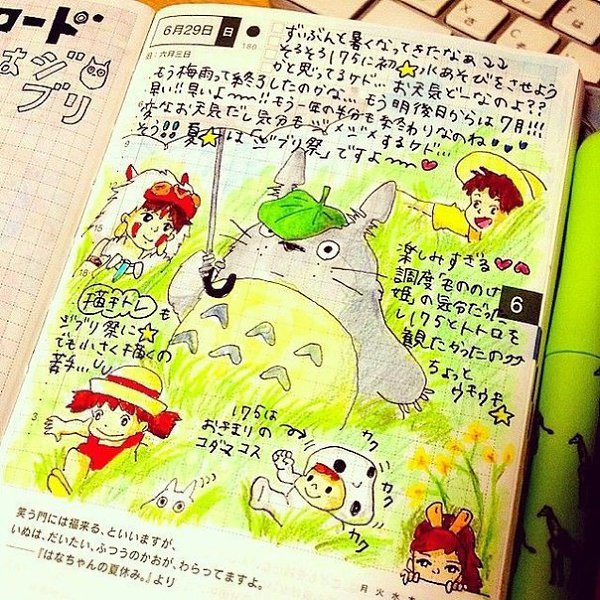 ロード
はジ
ブリ
6月29日 日
180
日：六月三日
ずいぶんと暑くなってきたなぁココ
そろそろ175に初★水あそびをさせよう
かと思ってるケド… お天気どーなのよ??
もう梅雨って終了したのかな… もう明後日からは7月!!!
早い!!早いよ〜!!もう一年の半分も終わりなのね
変なお天気だし気分もジメジメするケド…
そう!!夏★は「ジブリ祭」ですよ〜
楽しみすぎる
調度「もののけ
姫」の気分だった
し175とトトロを
観たかったの
ちょっと
ウキウキ
6
猫まんしも
ジブリ祭に☆
でも小さく描くの
苦手…
175は
お決まりの
コダマコス
カク
カク
カク
カク
15
18
3
笑う門には福来る、といいますが、
いぬは、だいたい、ふつうのかおが、わらってますよ。
──『はなちゃんの夏休み。』より
月 火 水 木